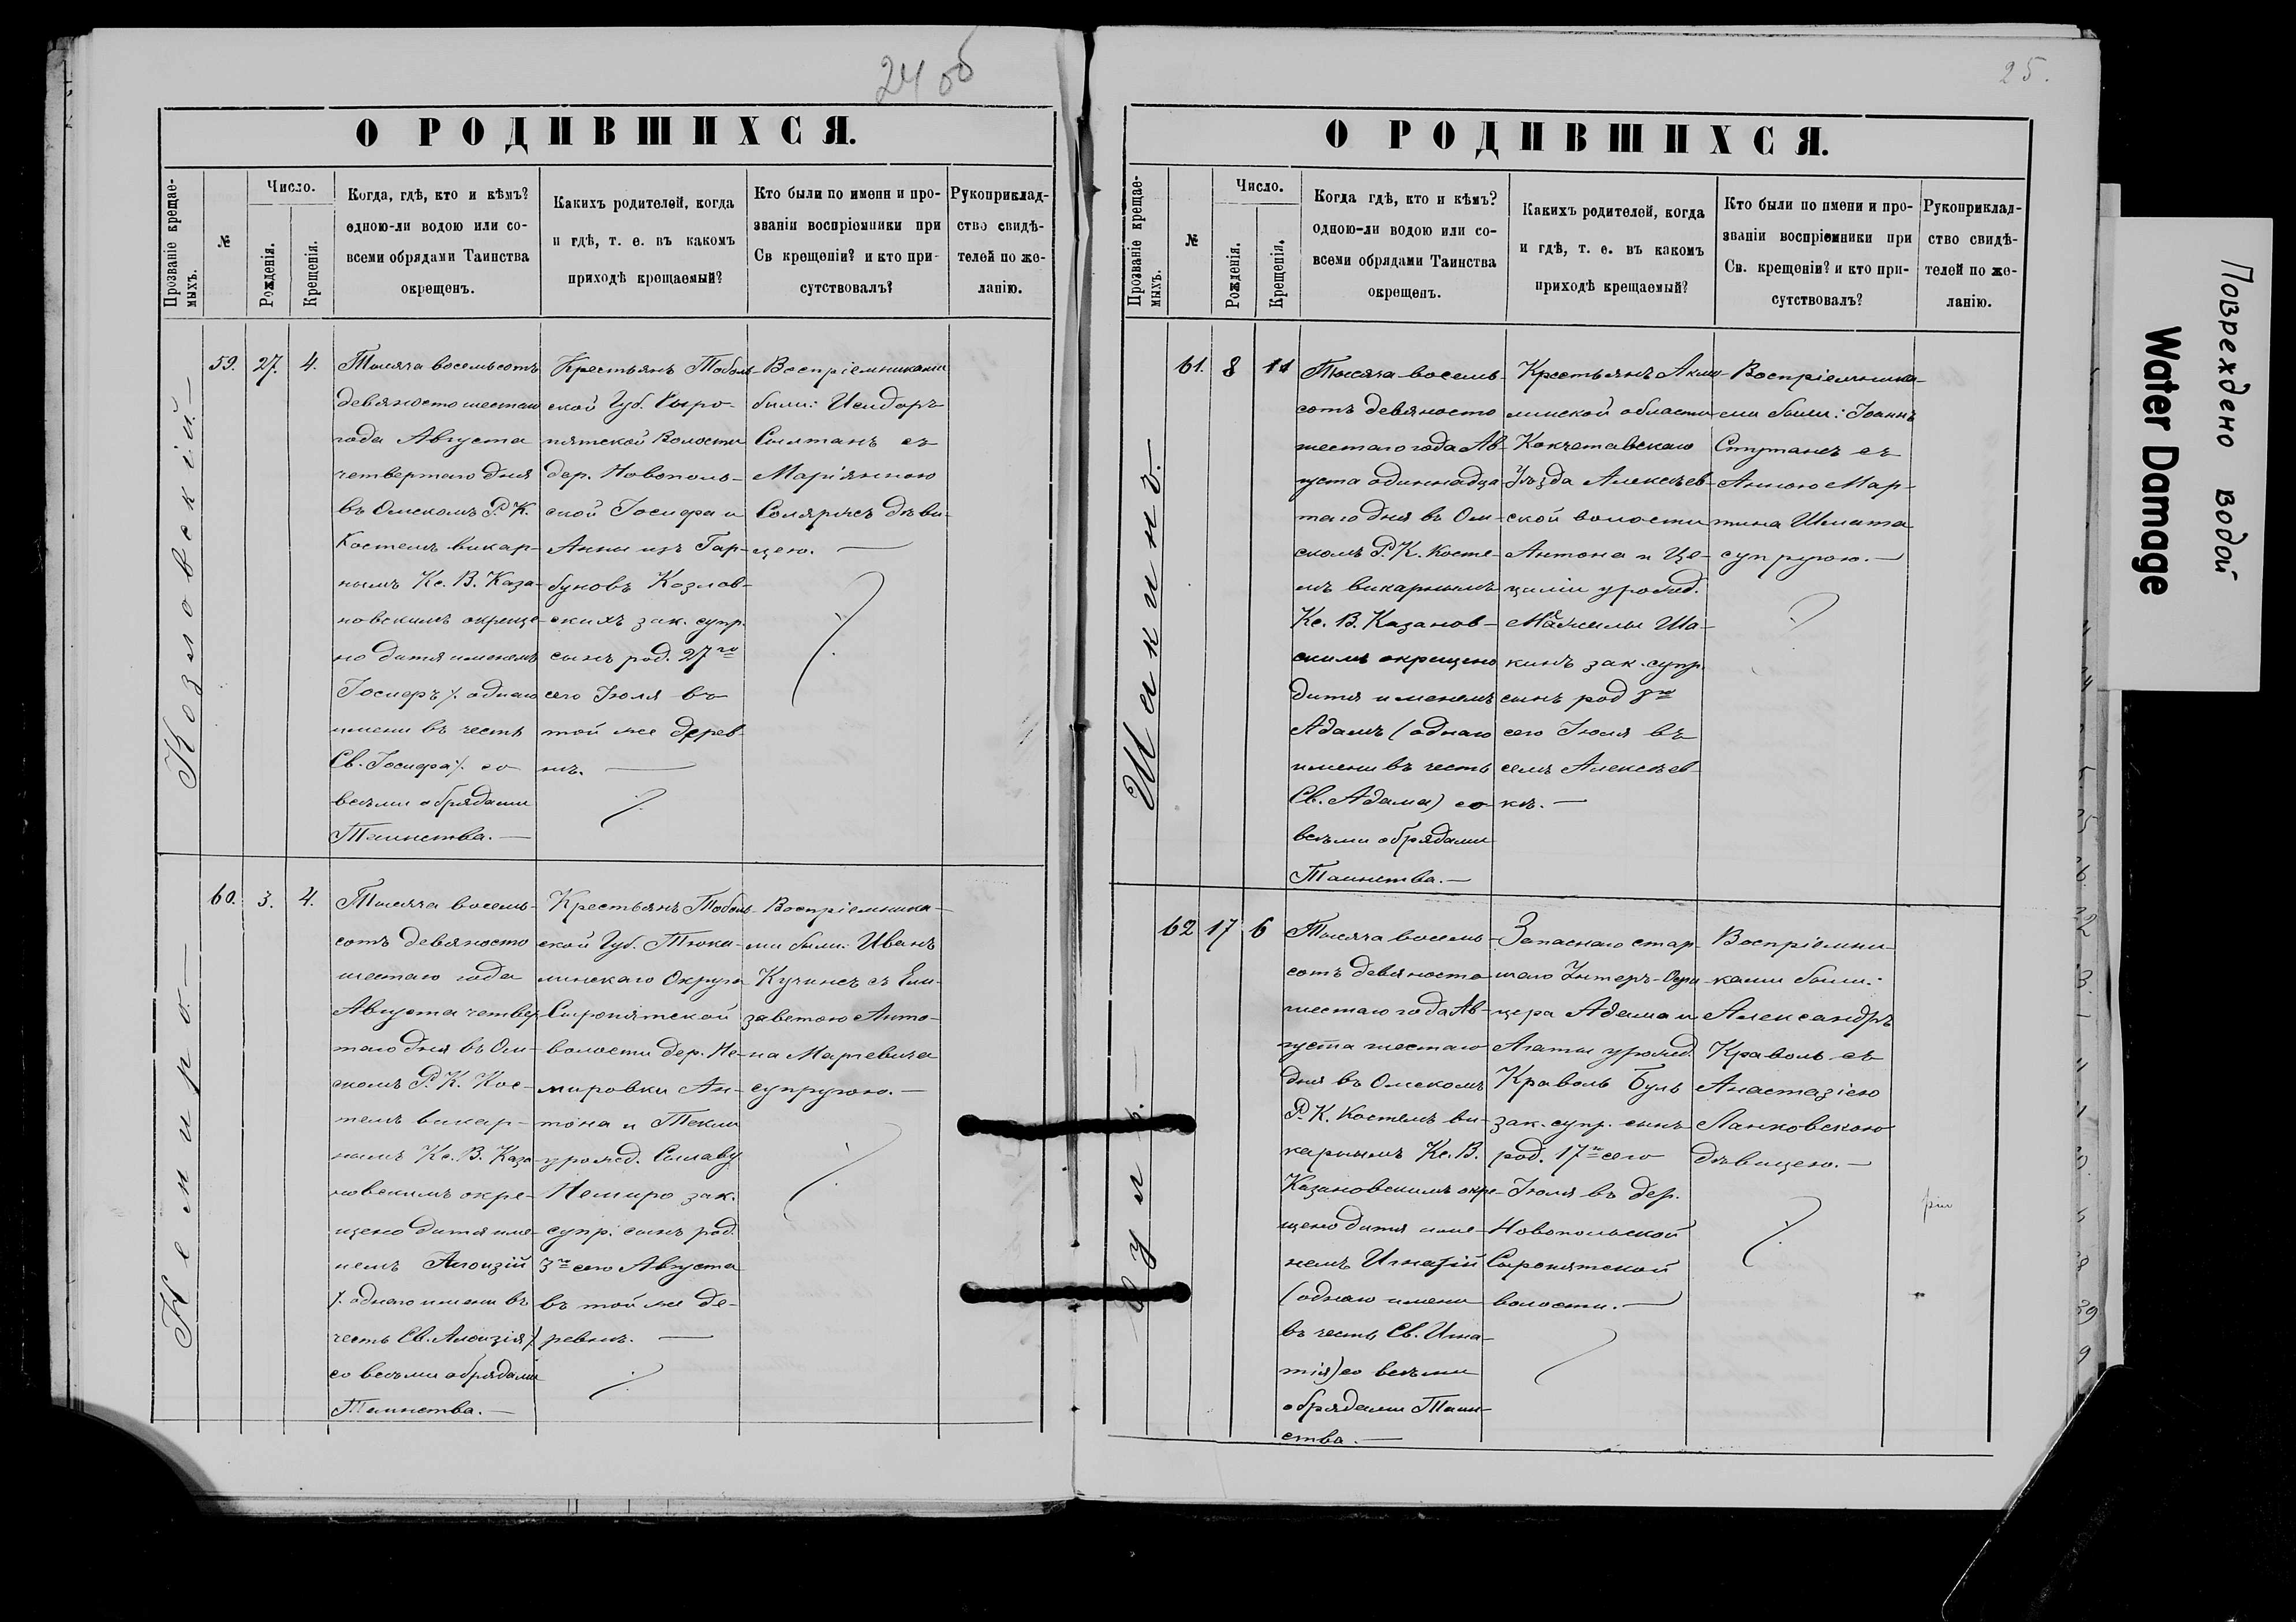 24 об
О РОДИВШИХСЯ.
Прозваніе крещае-
мыхъ.
№
Число.
Рожденія.
Крещенія.
Когда, гдѣ, кто и кѣмъ?
одною-ли водою или со-
всеми обрядами Таинства
окрещенъ.
Какихъ родителей, когда
и гдѣ, т. е. въ какомъ
приходѣ крещаемый?
Кто были по имени и про-
званіи воспріемники при
Св крещеніи? и кто при-
сутствовалъ?
Рукоприклад-
ство свидѣ-
телей по же-
ланію.
Козловскій.
59. 27. 4.
Тысяча восемьсотъ
девяносто шестаго
года Августа
четвертаго дня
въ Омскомъ Р. К.
Костелѣ викар-
нымъ Кс. В. Каза-
новскимъ окреще-
но дитя именемъ
Іосифъ /. однаго
имени въ честь
Св. Іосифа /. со
всѣми обрядами
Таинства.
Крестьянъ Тоболь-
ской Губ. Сыро-
пятской Волости
дер. Новополь-
ской Іосифа и
Анны изъ Гар-
буновъ Козлов-
скихъ зак. супр.
сынъ род. 27го
сего Іюля въ
той же дерев
нѣ.
Воспріемниками
были: Исидоръ
Солтанъ съ
Маріянною
Солярисъ дѣви-
цею.
Немиро.
60. 3. 4.
Тысяча восемь-
сотъ девяносто
шестаго года
Августа четвер
таго дня въ Ом-
скомъ Р. К. Кос-
телѣ викар-
нымъ Кс. В. Каза
новскимъ окре-
щено дитя име-
немъ Алоизій
/. однаго имени въ
честь Св. Алоизія /
со всѣми обрядами
Таинства.
Крестьянъ Тоболь-
ской Губ. Тюка-
линскаго Округа
Сыропятской
волости дер. Не-
мировки Ан-
тона и Текли
урожд.
Немиро зак.
супр. сынъ род.
3го сего Августа
въ той же де-
ревнѣ.
Воспріемника-
ми были: Иванъ
Кучинсъ съ Ели-
заветою Анто-
на Мацевича
супругою.
25.
О РОДИВШИХСЯ.
Прозваніе крещае-
мыхъ.
№
Число.
Рожденія.
Крещенія.
Когда гдѣ, кто и кѣмъ?
одною-ли водою или со-
всеми обрядами Таинства
окрещенъ.
Какихъ родителей, когда
и гдѣ, т. е. въ какомъ
приходѣ крещаемый?
Кто были по имени и про-
званіи воспріемники при
Св. крещеніи? и кто при-
сутствовалъ?
Рукоприклад-
ство свидѣ-
телей по же-
ланію.
Шакинъ.
61. 8 11
Тысяча восемь-
сотъ девяносто
шестаго года Ав-
густа одиннадца
таго дня въ Ом-
скомъ Р. К. Косте-
лѣ викарнымъ
Кс. В. Казанов-
скимъ окрещено
дитя именемъ
Адамъ (однаго
имени въ честь
Св. Адама) со
всѣми обрядами
Таинства.
Крестьянъ Акмо-
линской области
Кокчетавскаго
Уѣзда Алексѣев-
ской волости
Антона и Це-
циліи урожд.
Ша-
кинъ зак. супр.
сынъ род 8го
сего Іюля въ
селѣ Алексѣев-
кѣ.
Воспріемника-
ми были: Іоаннъ
Стутанъ съ
Анною Мар-
тина Шмита
супругою.
Буль.
62 17 6
Тысяча восемь-
сотъ девяносто
шестаго года Ав-
густа шестаго
дня въ Омскомъ
Р. К. Костелѣ ви-
карнымъ Кс. В.
Казановскимъ окре-
щено дитя име-
немъ Игнатій
(однаго имени
въ честь Св. Игна-
тія) со всѣми
обрядами Таин-
ства.
Запаснаго стар-
шаго Унтеръ-Офи-
цера Адама и
Агаты урожд.
Кроволь Буль
зак. супр. сынъ
род. 17го сего
Іюля въ дер.
Новопольской
Сыропятской
волости.
Воспріемни-
ками были:
Александръ
Кроволь съ
Анастазіею
Ланковскою
дѣвицею.
Повреждено водой
Water Damage